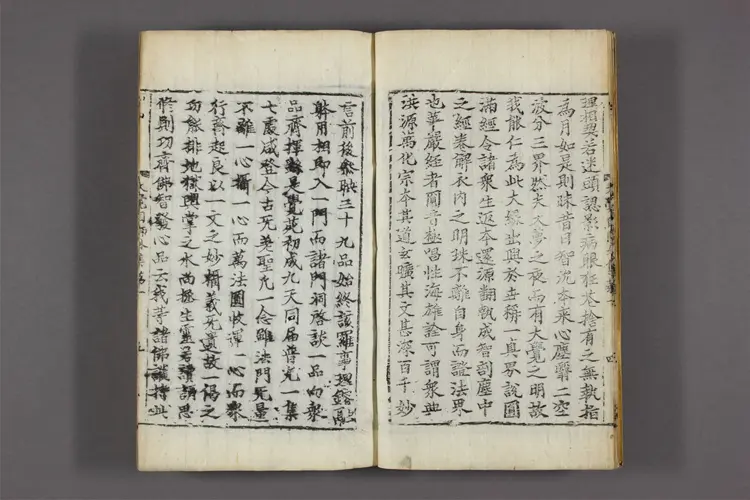 理相現若迷頭認影病眼狂花捨有之無執指
為月如是則昧昔日智沉本來心塵翳二空
波分三界然失久夢之衰而有大覺之明故
我能仁為此大緣出興於世稱一真界說圓
滿經令諸衆生返本還源翻執成智剖塵中
之經卷解衣内之明珠不離自身而證法界
也華嚴經者圓音極唱性海雄詮可謂衆典
洪源萬化宗本其道玄曠其文甚深百千妙
言前後㷊映三十九品始終該羅事理鎔融
躰用相即入一門而諸門洞啓談一品而衆
品齊擇是覺花初成九天同届普光一集
七處咸登今古无差聖凡一念雖法門无量
不離一心攝一心而萬法圓收運一心而衆
行齊起良以一文之妙攝義无遺故一偈之
功能排地獄興掌之水尚拯生靈若讀誦思
修則功齊佛智發心品云我等諸佛護持此